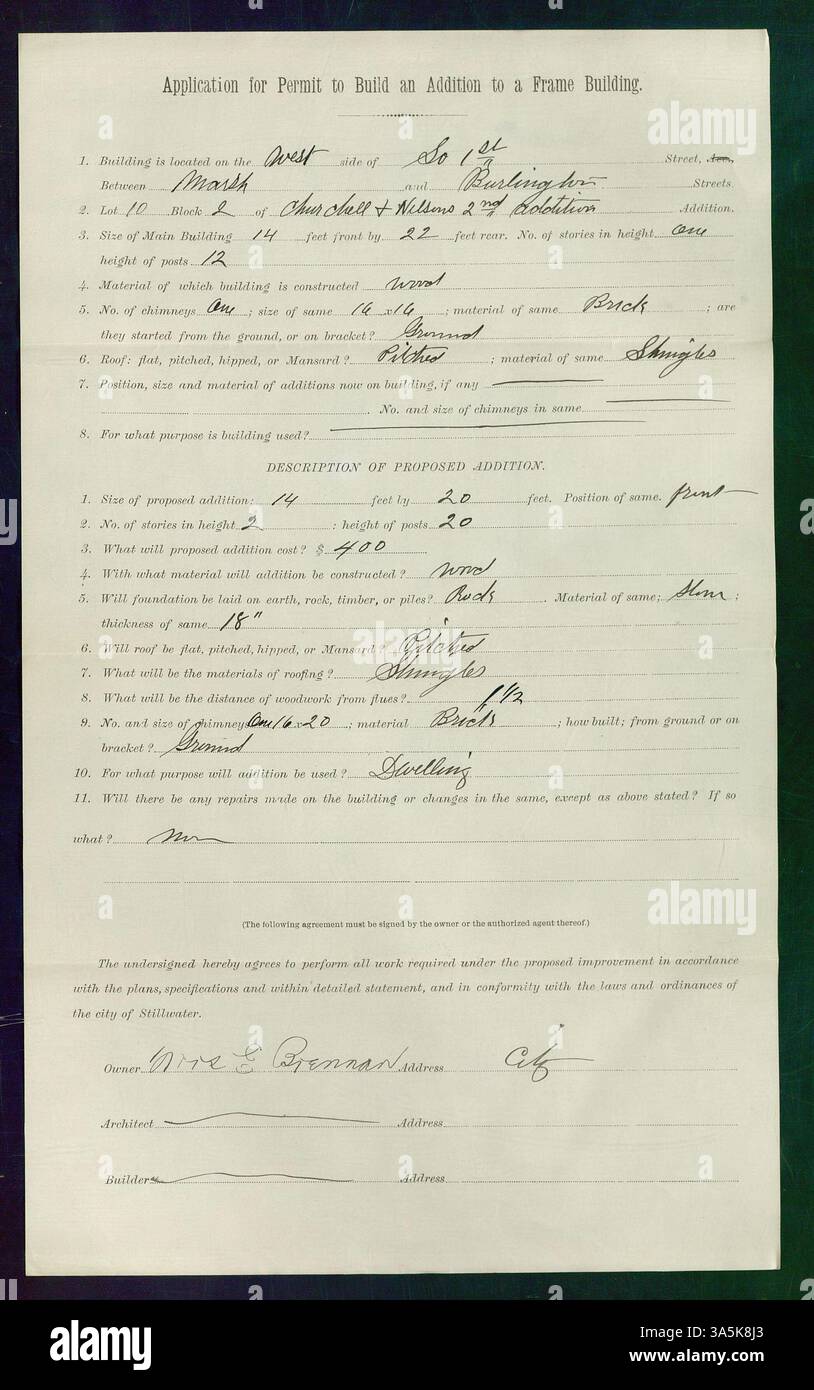 Application for Permit to Build an Addition to a Frame Building.
1. Building is located on the West side of So 1st Street, Ave.
Between Marsh and Burlington Streets.
2. Lot 10 Block 2 of Churchell & Nelsons 2nd Addition Addition.
3. Size of Main Building 14 feet front by 22 feet rear. No. of stories in height One
height of posts 12
4. Material of which building is constructed Wood
5. No. of chimneys One ; size of same 16 x 16 ; material of same Brick ; are
they started from the ground, or on bracket? Ground
6. Roof: flat, pitched, hipped, or Mansard? Pitched ; material of same Shingles
7. Position, size and material of additions now on building, if any
No. and size of chimneys in same
8. For what purpose is building used?
DESCRIPTION OF PROPOSED ADDITION.
1. Size of proposed addition: 14 feet by 20 feet. Position of same. front
2. No. of stories in height 2 : height of posts 20
3. What will proposed addition cost? $ 400
4. With what material will addition be constructed? Wood
5. Will foundation be laid on earth, rock, timber, or piles? Rock . Material of same; Stone ;
thickness of same 18"
6. Will roof be flat, pitched, hipped, or Mansard? Pitched
7. What will be the materials of roofing? Shingles
8. What will be the distance of woodwork from flues? 1 1/2
9. No. and size of chimneys One 16 x 20 ; material Brick ; how built; from ground or on
bracket? Ground
10. For what purpose will addition be used? Dwelling
11. Will there be any repairs made on the building or changes in the same, except as above stated? If so
what?
(The following agreement must be signed by the owner or the authorized agent thereof.)
The undersigned hereby agrees to perform all work required under the proposed improvement in accordance
with the plans, specifications and within detailed statement, and in conformity with the laws and ordinances of
the city of Stillwater.
Owner Mrs E Brennan Address City
Architect Address
Builder Address
alamy
alamy
alamy
alamy
alamy
alamy
Image ID: 3A5K8J3
www.alamy.com